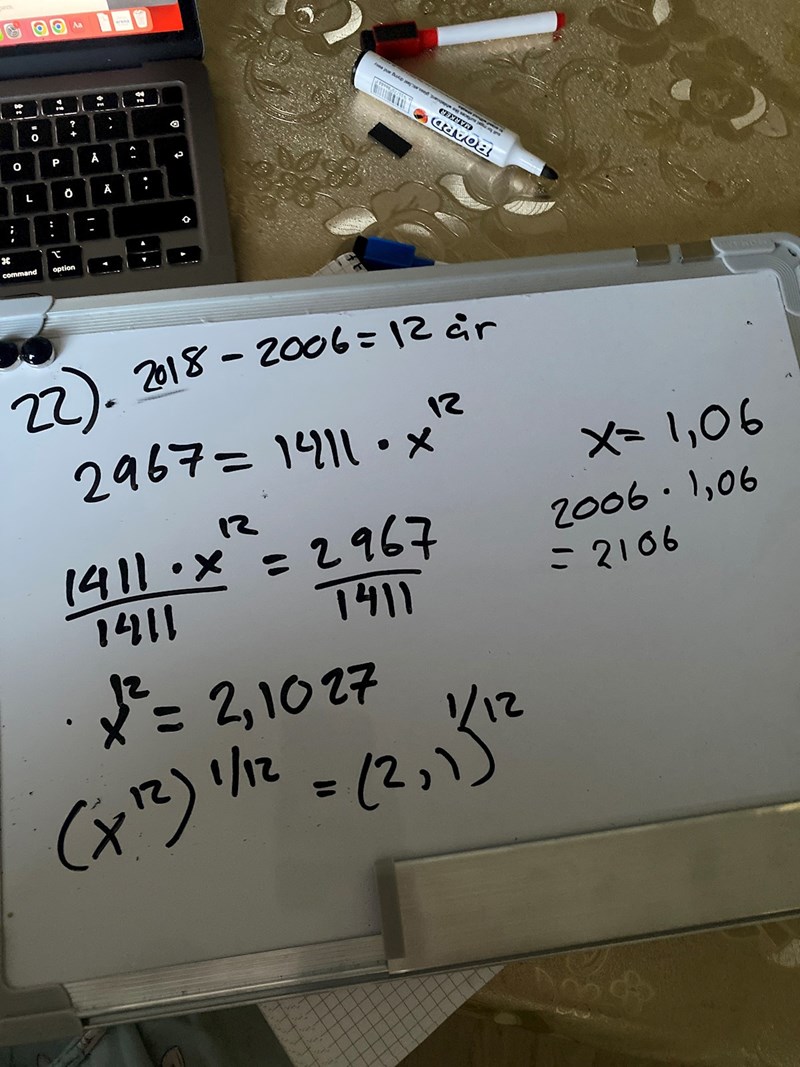 BOARD
MARKER
O P Å
L Ö Ä
command
option
22). 2018 - 2006 = 12 år
2967 = 1411 · x^12
1411 · x^12 / 1411 = 2967 / 1411
· x^12 = 2,1027
(x^12)^1/12 = (2,1)^1/12
x = 1,06
2006 · 1,06
= 2106